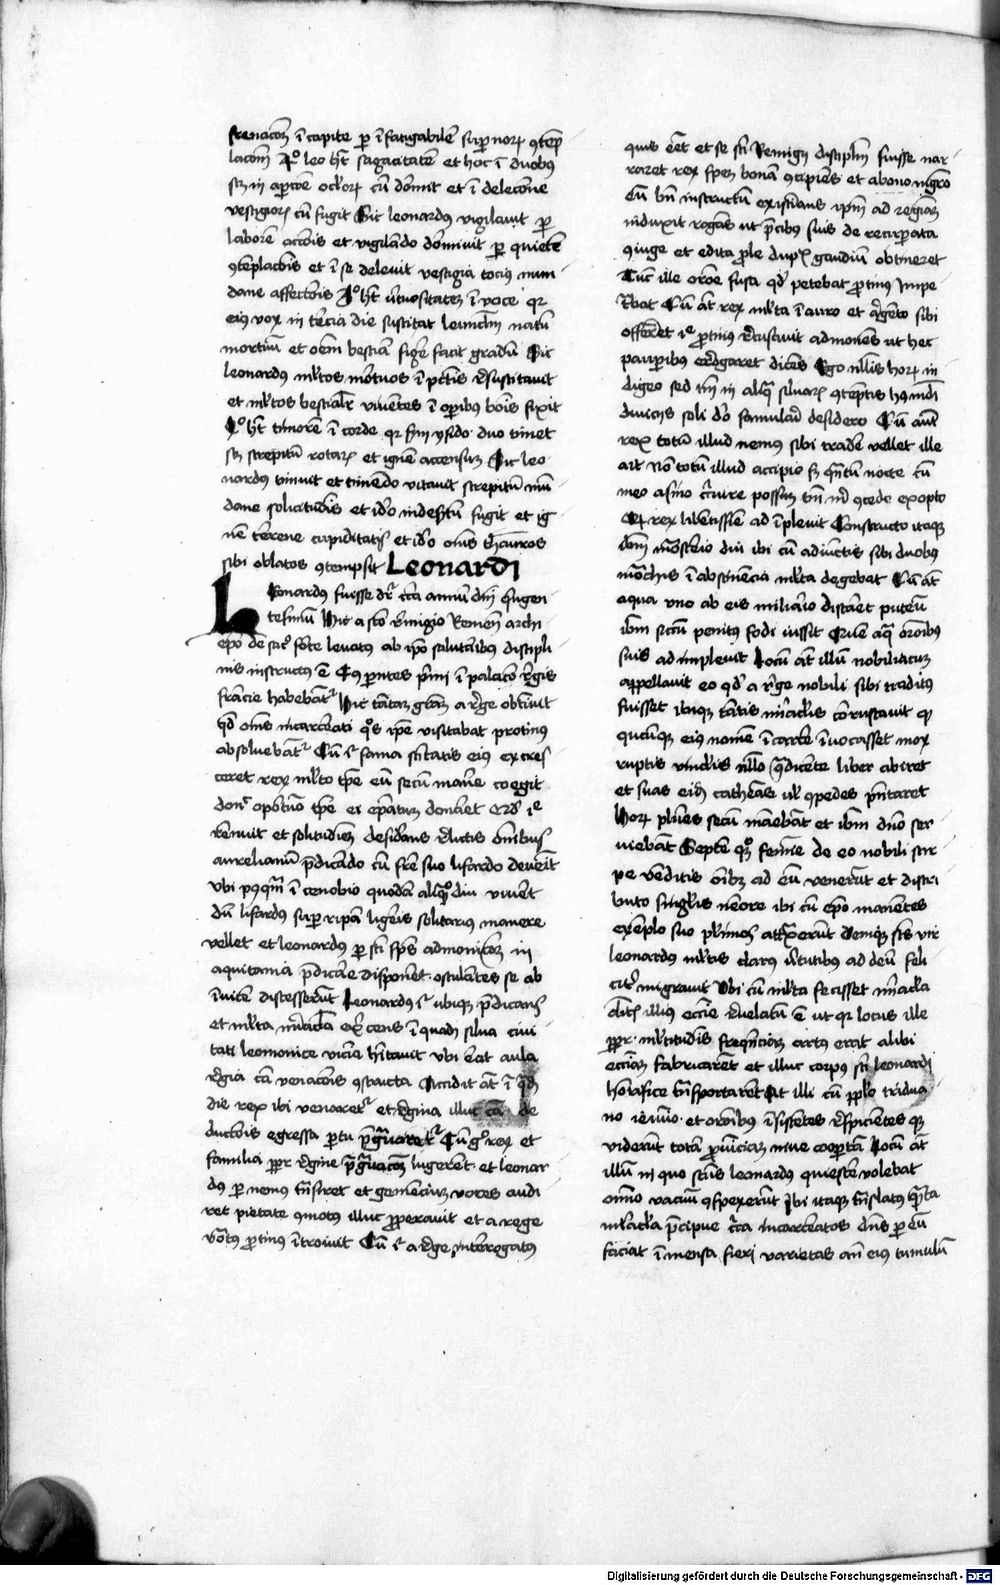 frenacōꝫ ī capite ꝑ īfatigabilē suꝑnoꝝ ꝯtēp
lacōꝫ 2º leo hꝫ sagacitatē et hoc ī duobꝰ
ſcꝫ in aꝑcōe oclōꝝ cū dormit et ī delecōne
veſtigioꝝ cū fugit Sic leonardꝰ vigilauit ꝑ
laborē accōis et vigilādo dormiuit ꝑ quietē
ꝯtēplacōis et ī ſe deleuit veſtigia tociꝰ mun
dane affectōis 3º hꝫ v̄tuoſitatem ī voce qꝛ
eiꝰ vox in tercia die ſuſcitat leunclm̄ natū
mortuū et oēm beſtiaꝫ figẽ facit gradū Sic
leonardꝰ ml̄tos mortuos ī pctīs reſuſcitauit
et ml̄tos beſtialr̄ viuentes ī oꝑibꝰ bonis fixit
4º hꝫ timorē ī corde qꝛ ẜm yſido duo timet
ſcꝫ ſtrepitū rotaꝝ et ignē accenſum Sic leo
nardꝰ timuit et timēdo vitauit ſtrepitū mū
dane ſolicitudīs et iō īndeſtū fugit et ig
nē terrene cupiditatis et iō oms̄ theſauros
ſibi oblatos ꝯtempſit Leonardi
Leonardꝰ fuiſſe dr̄ circa annū dn̄i quigen
teſimū Hic a ſcō remigio Remen̄ archi
ep̄o de ſacº fōte leuatꝰ ab ip̄o ſalutaribꝰ diſcipli
nis inſtructꝰ ē Cꝰ ꝑentes pͥmi ī palacio regis
francie habebāt᷑ Hic tātam grām a rege obtīuit
qd̓ oms̄ incarcerati qͦs ip̄e viſitabat protinꝰ
abſoluebāt᷑ Cū gͦ fama ſcītatis eiꝰ excreſ
ceret rex ml̄to tp̄e eū ſecum manē coegit
donͨ oportuo tp̄e ei ep̄atum donaret qd̓ ip̄e
renuit et ſolitudinē deſiderans relictis omnibus
aurelianū p̄dicādo cū fre ſuo lifardo deuenit
Vbi poſtqm̄ ī cenobio quodā aliqͦdiu viuerēt
dū lifardꝰ ſuꝑ ripam ligeris ſolitarius manere
vellet et leonardꝰ ꝑ ſcī ſp̄s admonicōem in
aquitania p̄dicare diſponet oſculātes ſe ab
īuicē diſceſſerūt Leonardꝰ gͦ vbiqꝫ p̄dicans
et ml̄ta miracla exercens ī quadā ſilua ciui
tati lemonice vicina hītauit vbi erat aula
regia cā venacōis ꝯſtructa Accidit āt ī qd̓
die rex ibi venaret᷑ et regina illuc cā de
ductōis egreſſa ꝑtu p̄grauaret᷑ Cū gͦ rex et
familia ꝓpr̄ regine p̄grauacōꝫ lugerēt et leonar
dꝰ ꝑ nemꝰ tn̄ſiret et gemenciū voces audi
ret pietate ꝯmotꝰ illuc ꝓperauit et a rege
vocatꝰ ꝓtinꝰ ītroiuit Cū gͦ a rege interrogatꝰ
quis eēt et ſe ſcī Remigij diſciplm̄ fuiſſe nar
raret rex ſpem bonā ꝯcipiēs et a bono mgrō
eū bn̄ inſtructū exiſtīans ip̄m ad reginā
induxit rogās ut p̄cibꝰ ſuis de recuꝑata
ꝯiuge et edita ꝓle dupꝉ gaudiū obtineret
Tūc ille orōe fuſa qd̓ petebat ꝓtinꝰ impe
trabat Cū āt rex ml̄ta ī auro et argēto ſibi
offerret ip̄e ꝓtinꝰ recuſauit admonēs ut hec
pauperibus erogaret dicēs Ego nll̄is hoꝝ in
digeo ſed tm̄ in aliqͣ ſiluaꝝ ꝯtēptis hꝰ mdī
diuicijs ſoli dō famulari deſidero Cū autē
rex totū illud nemꝰ ſibi trade vellet ille
ait Nō totū illud accipio ſꝫ qn̄tū nocte cū
meo aſino circuire poſſum tm̄ mͥ ꝯcede exopto
Qd̓ rex libētiſſīe adīpleuit Conſtructo itaqꝫ
ibidem monaſterio diu ibi cū adiunctis ſibi duobꝰ
monachis ī abſtinēcia ml̄ta degebat Cū āt
aqua vno ab eis miliario diſtaret puteū
ibm̄ ſiccū penitꝰ fodi iuſſit Quē aqͣ orōibꝰ
ſuis adimpleuit Locū āt illū nobiliacum
appellauit eo qd̓ a rege nobili ſibi traditꝰ
fuiſſet ibiqꝫ tātis miraclīs coruſcauit qͥ
qͥcūqꝫ eiꝰ nomē ī carcere īuocaſſet mox
ruptis vinclīs nll̄o cōtradicēte liber abiret
et ſuas eidē cathēas uł ꝯpedes p̄ſentaret
Hoꝝ plūes ſecū manebāt et ibm̄ dn̄o ſer
uiebāt Septē qͦꝫ familie de eo nobili ſtir
pe vēditis oībꝫ ad eū venerūt et diſtri
buto ſingl̄is nemore ibi cū ip̄o manentes
exemplo ſuo plimos attraxerūt Deniqꝫ ſcs̄ vir
leonardꝰ ml̄tis clarꝰ v̄tutibꝰ ad deū feli
citer migrauit Vbi cū ml̄ta feciſſet miracla
clericis illius eccīe reuelatū ē ut qꝛ locus ille
ꝓpr̄ ml̄titudīs frequēciam artus erat alibi
ecciaꝫ fabricarēt et illuc corpꝰ ſcī leonardi
honorifice tn̄ſportarēt At illi cū ꝓplo tridua
no ieiūio et orōnibꝰ īſiſtētes reſpiciētes qꝫ
viderūt totā ꝓuīciam niue cooꝑtā Locū āt
illū in quo ſcūs leonardꝰ quieſcere volebat
omīo vacuū ꝯſpexerūt Ibi itaqꝫ tn̄ſlatꝰ quāta
miracla p̄cipue circa incarceratos dn̄s ꝑ eū
faciat īmenſa ferri varietas an̄ eiꝰ tumulū
Digitalisierung gefördert durch die Deutsche Forschungsgemeinschaft - DFG